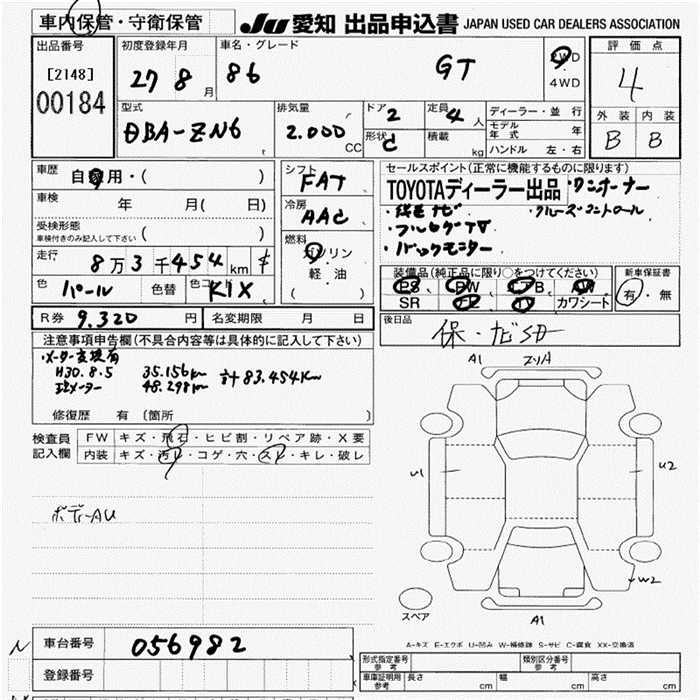 車内保管・守衛保管 JU 愛知 出品申込書 JAPAN USED CAR DEALERS ASSOCIATION
出品番号 初度登録年月 車名・グレード 評価点
[2148] 27 8月 86 GT 2WD・4WD 4
00184 型式 排気量 ドア 2 定員 4人 ディーラー・並行 外装 内装
DBA-ZN6 2.000CC 形状 C 積載 kg モデル年式 年 B B
ハンドル 左・右
車歴 自家用・( ) シフト FAT セールスポイント(正常に機能するものに限ります)
車検 年 月( 日) 冷房 AAC TOYOTAディーラー出品・ワンオーナー
受検形態 ・純正ナビ ・クルーズコントロール
車検付きのみ記入して下さい ( ) 燃料 ・フルセグTV
走行 8万3千454km ガソリン ・バックモニター
軽・油
色 パール 色替 色コード K1X ( ) 装備品(純正品に限り○をつけてください) 新車保証書
PS PW AB AW 有・無
SR カワシート
R券 9.320円 名変期限 月 日 後日品
保・ナビSD
注意事項申告欄(不具合内容等は具体的に記入して下さい)
・メーター交換有
H30.8.5 35.156km 計83.454Km
現メーター 48.298km
修復歴 有 〔箇所 〕
検査員 FW キズ・飛石・ヒビ割・リペア跡・X要
記入欄 内装 キズ・汚レ・コゲ・穴・スレ・キレ・破レ
A1
U1 U2
ボデーAU
W2
スペア A1
A-キズ E-エクボ U-凹み W-補修跡 S-サビ C-腐食 XX-交換済
車台番号 056982
登録番号
形式指定番号 参考 類別区分番号 参考
車庫証明用 参考 長さ cm 幅 cm 高さ cm